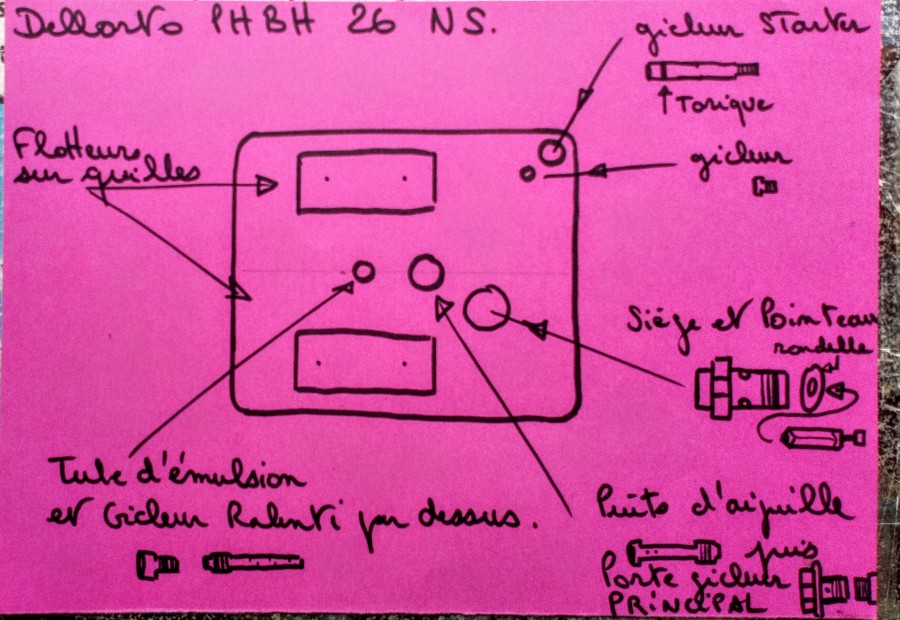 Dellorto PHBH 26 NS.
gicleur STarter
Torique
Flotteurs
sur quilles
gicleur
Siège et Pointeau
rondelle
Tube d'émulsion
et Gicleur Ralenti par dessus.
Puits d'aiguille
puis
Porte gicleur
PRINCIPAL